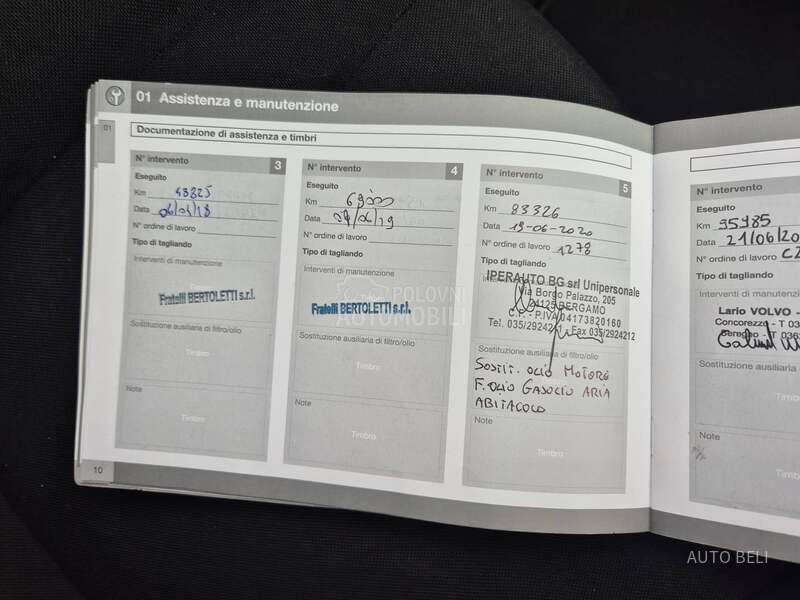 01 Assistenza e manutenzione
01
Documentazione di assistenza e timbri
N° intervento 3
Eseguito
Km 43825
Data
N° ordine di lavoro
Tipo di tagliando
Interventi di manutenzione
Fratelli BERTOLETTI s.r.l.
Sostituzione ausiliaria di filtro/olio
Timbro
Note
Timbro
N° intervento 4
Eseguito
Km
Data
N° ordine di lavoro
Tipo di tagliando
Interventi di manutenzione
Fratelli BERTOLETTI s.r.l.
Sostituzione ausiliaria di filtro/olio
Timbro
Note
Timbro
N° intervento 5
Eseguito
Km 83326
Data 19-06-2020
N° ordine di lavoro 1278
Tipo di tagliando
IPERAUTO BG srl Unipersonale
Via Borgo Palazzo, 205
24125 BERGAMO
C.F. - P.IVA 04173820160
Tel. 035/2924211 - Fax 035/2924212
Sostituzione ausiliaria di filtro/olio
SOSTIT. OLIO MOTORE
F. OLIO GASOLIO ARIA
ABITACOLO
Note
Timbro
N° intervento
Eseguito
Km 95985
Data 21/06/20
N° ordine di lavoro
Tipo di tagliando
Interventi di manutenzione
Lario VOLVO -
Concorezzo - T 03
Sostituzione ausiliaria
Timbro
Note
Timbro
10
POLOVNI
AUTOMOBILI
AUTO BELI